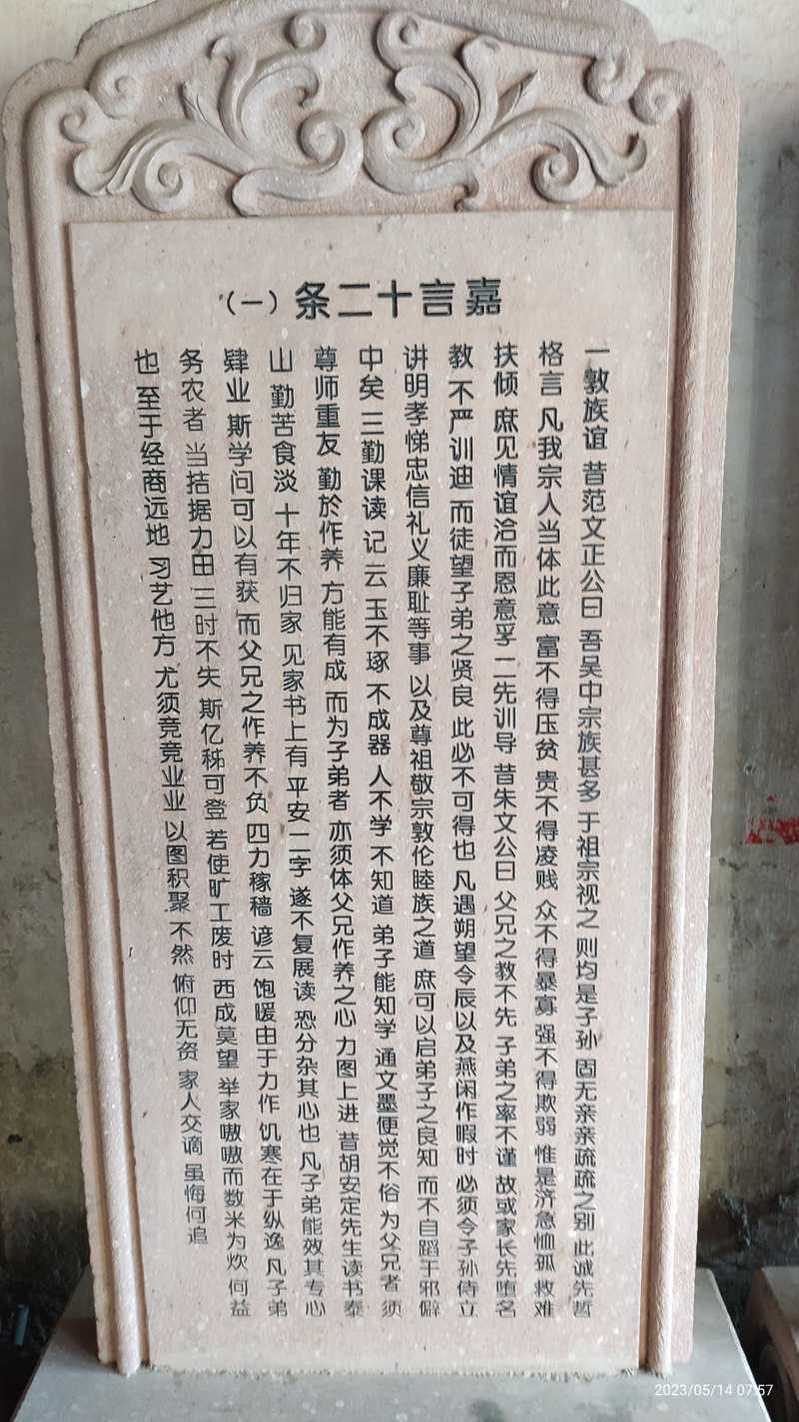 嘉言十二条（一）
一敦族谊 昔范文正公曰 吾吴中宗族甚多 于祖宗视之 则均是子孙 固无亲亲疏疏之别 此诚先哲
格言 凡我宗人当体此意 富不得压贫 贵不得凌贱 众不得暴寡 强不得欺弱 惟是济急恤孤 救难
扶倾 庶见情谊洽而恩意孚 二先训导 昔朱文公曰 父兄之教不先 子弟之率不谨 故或家长先堕名
教 不严训迪 而徒望子弟之贤良 此必不可得也 凡遇朔望令辰以及燕闲作暇时 必须令子孙侍立
讲明孝悌忠信礼义廉耻等事 以及尊祖敬宗敦伦睦族之道 庶可以启弟子之良知 而不自蹈于邪僻
中矣 三勤课读 记云 玉不琢 不成器 人不学 不知道 弟子能知学 通文墨便觉不俗 为父兄者 须
尊师重友 勤於作养 方能有成 而为子弟者 亦须体父兄作养之心 力图上进 昔胡安定先生读书泰
山 勤苦食淡 十年不归家 见家书上有 平安二字 遂不复展读 恐分杂其心也 凡子弟能效其专心
肄业 斯学问可以有获 而父兄之作养不负 四力稼穑 谚云 饱暖由于力作 饥寒在于纵逸 凡子弟
务农者 当拮据力田 三时不失 斯亿秭可登 若使旷工废时 西成莫望 举家嗷嗷而数米为炊 何益
也 至于经商远地 习艺他方 尤须竞竞业业 以图积聚 不然 俯仰无资 家人交谪 虽悔何追
2023/05/14 07:57